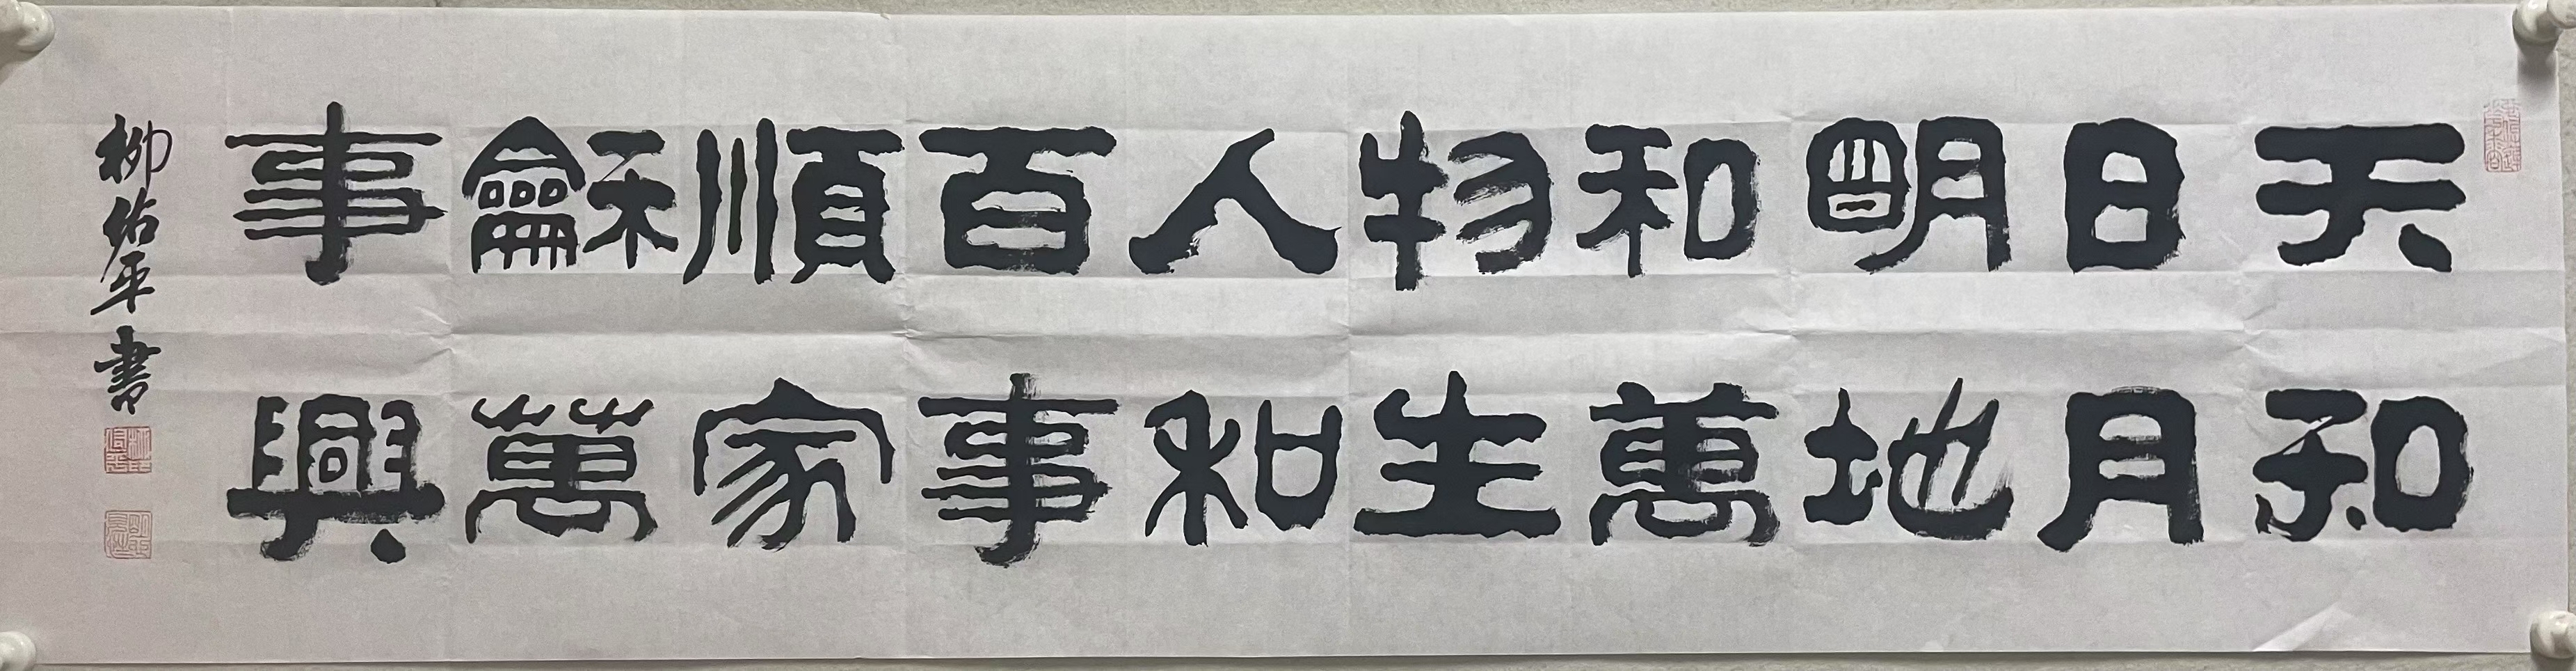 天和
日月
明地
和萬
物生
人和
百事
順家
龢萬
事興
柳佑平書